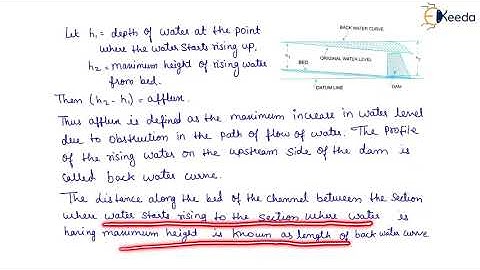 Ekeeda
Let h₁ = depth of water at the point
where the water starts rising up,
h₂ = maximum height of rising water
from bed.
Then (h₂ - h₁) = afflux.
BACK WATER CURVE
ORIGINAL WATER LEVEL
h₁
h₂
BED
DATUM LINE
DAM
Thus afflux is defined as the maximum increase in water level
due to obstruction in the path of flow of water. The profile
of the rising water on the upstream side of the dam is
called back water curve.
The distance along the bed of the channel between the section
where water starts rising to the section where water is
having maximum height is known as length of back water curve